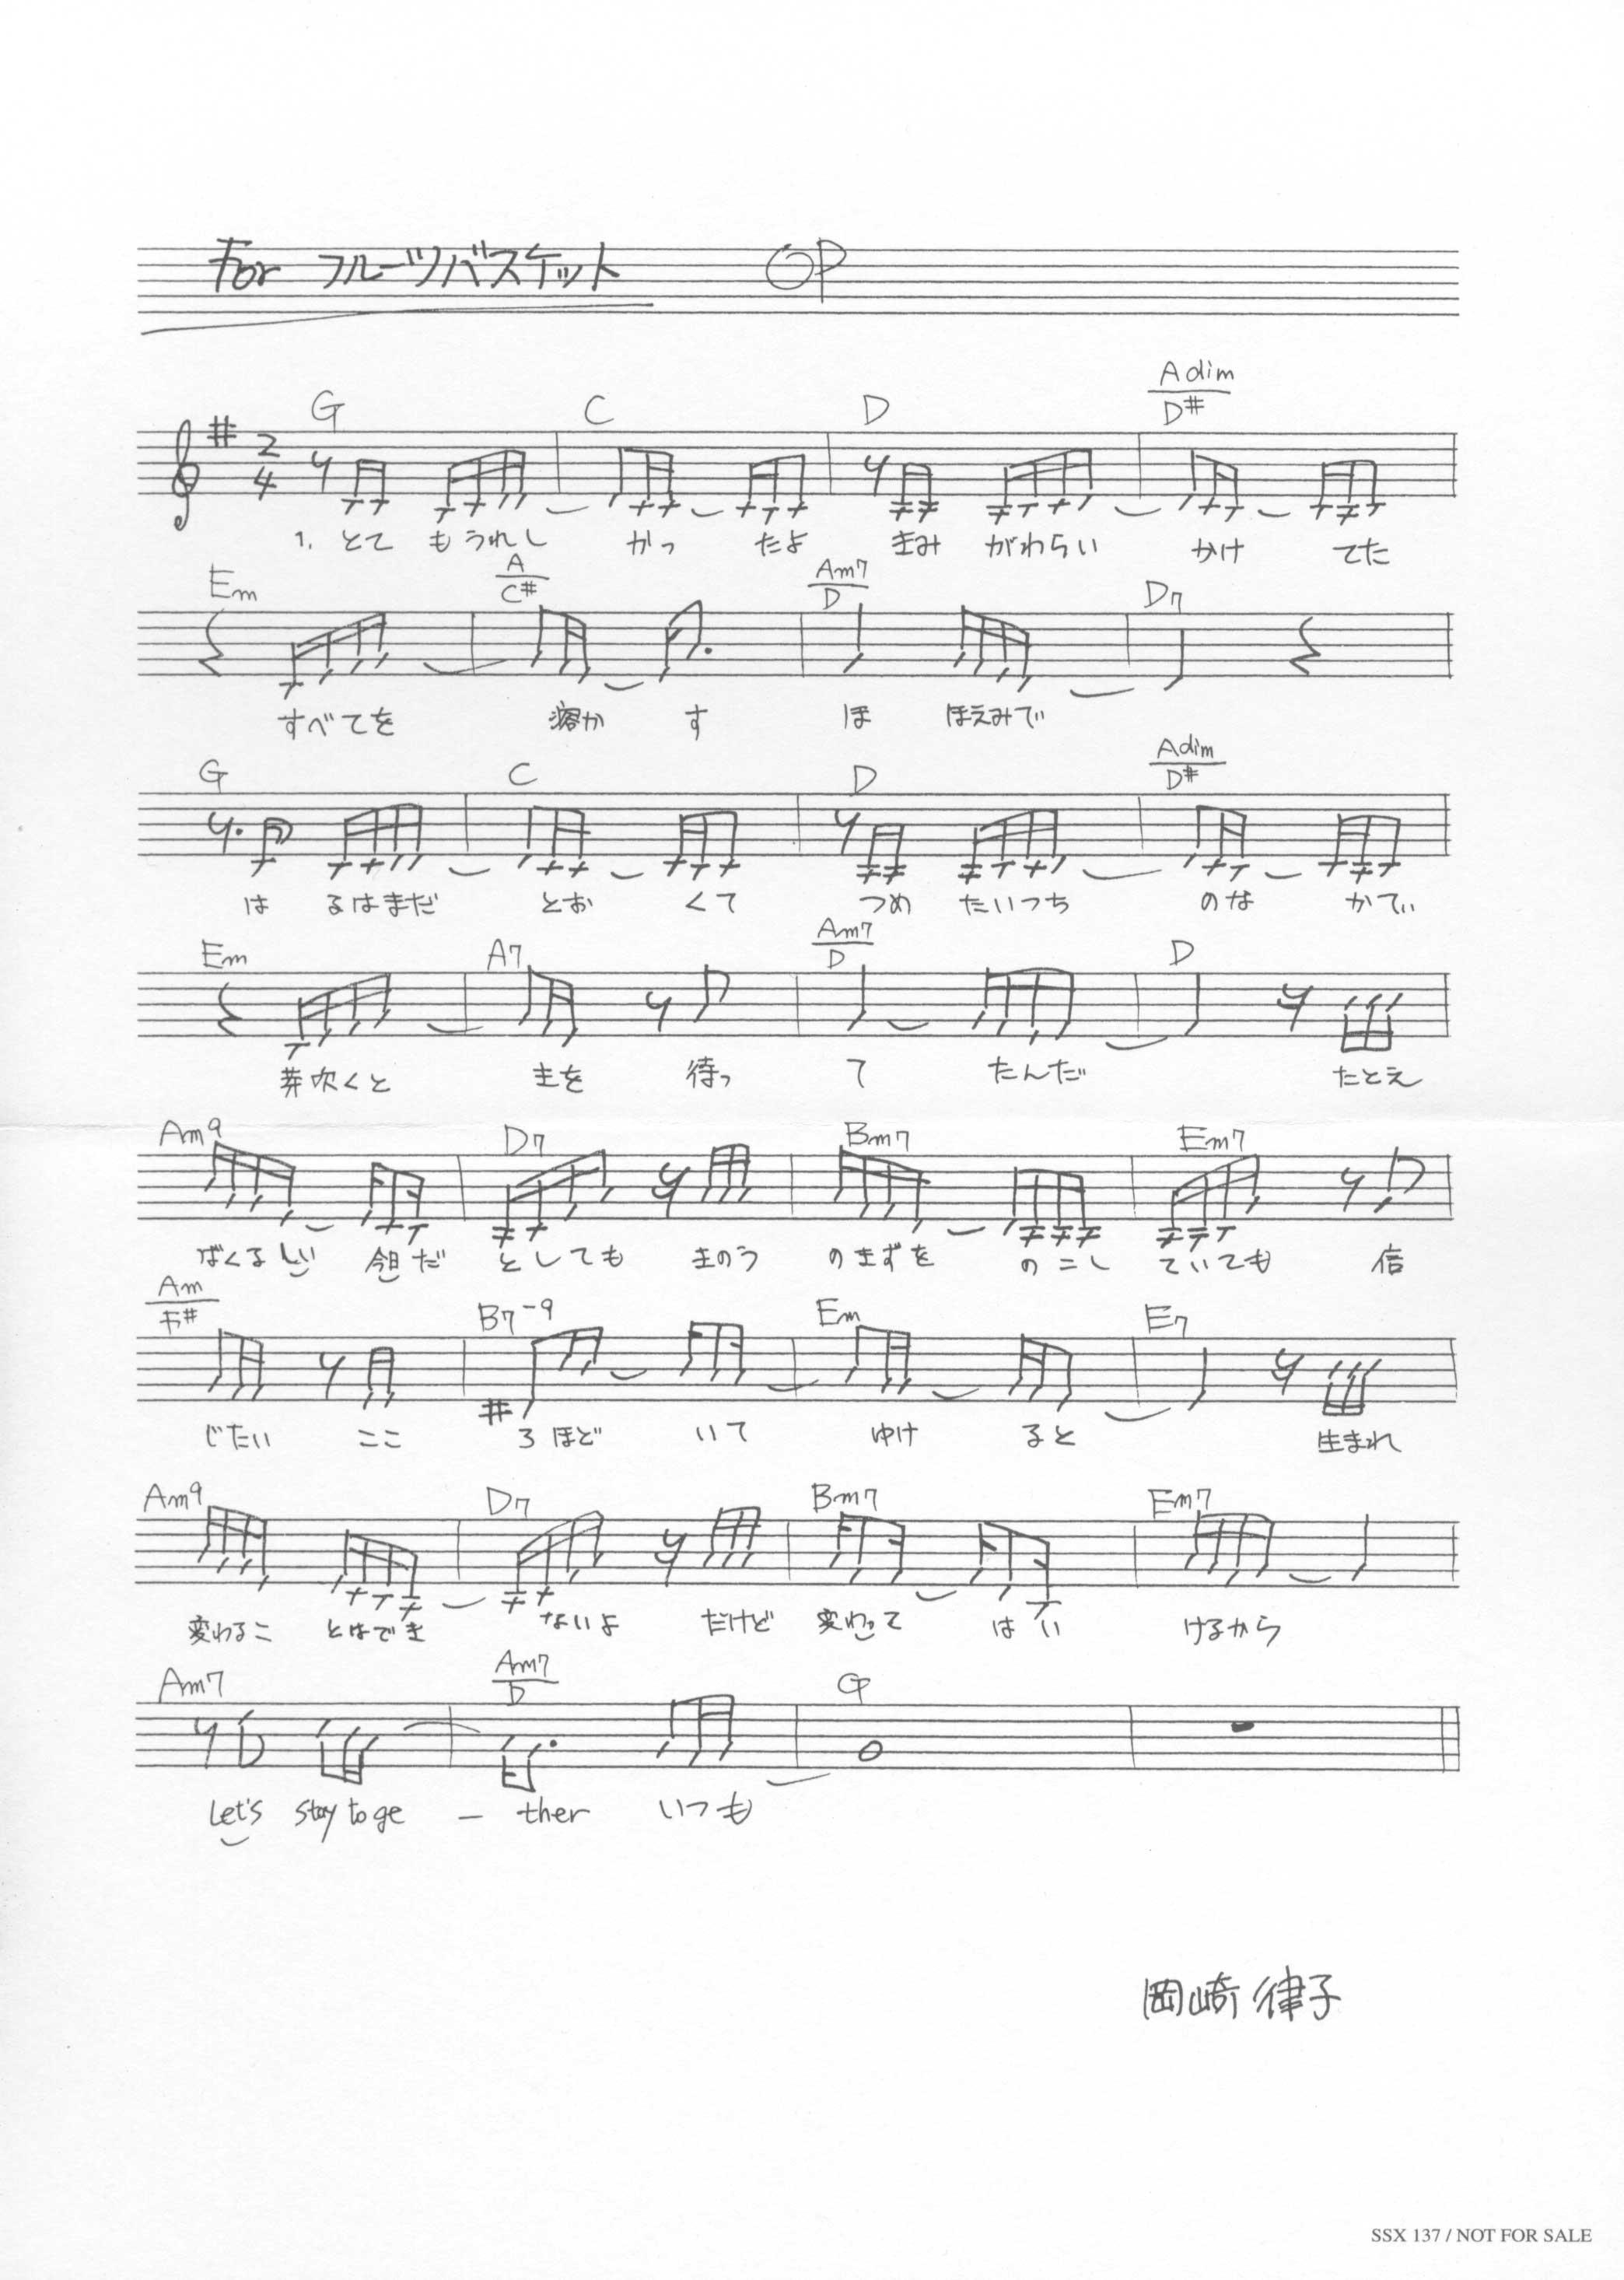 For フルーツバスケット OP
G C D Adim/D#
2/4
1. とて もうれし かっ たよ きみ がわらい かけ てた
Em A/C# Am7/D D7
すべてを 溶か す ほ ほえみで
G C D Adim/D#
は るはまだ とお くて つめ たいつち のな かで
Em A7 Am7/D D
芽吹くと きを 待っ て たんだ たとえ
Am9 D7 Bm7 Em7
ばくるしい 今日だ としても きのう のきずを のこし ていても 信
Am/F# B7-9 Em E7
じたい ここ ろほど いて ゆけ ると 生まれ
Am9 D7 Bm7 Em7
変わるこ とはでき ないよ だけど 変わって はい けるから
Am7 Am7/D G
Let's stay toge – ther いつも
岡崎律子
SSX 137 / NOT FOR SALE